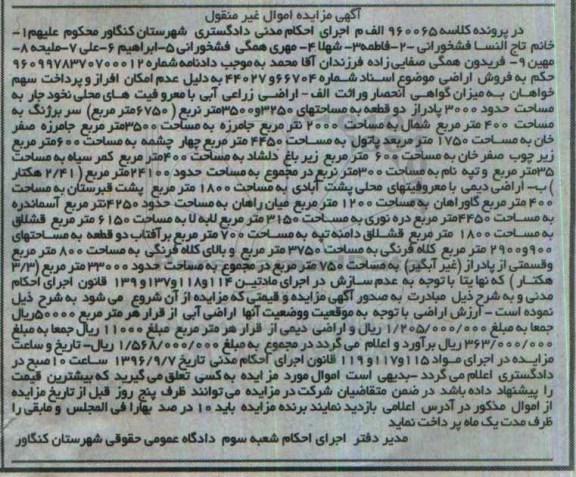 آگهی مزایده اموال غیر منقول
در پرونده کلاسه ۹۶۰۰۶۵ الف م اجرای احکام مدنی دادگستری شهرستان کنگاور محکوم علیهم۱-
خانم تاج النسا فشخورانی -۲-فاطمه۳- شهلا ۴- مهری همگی فشخورانی ۵-ابراهیم ۶-علی ۷-ملیحه ۸-
مهین ۹- فریدون همگی صفایی زاده فرزندان آقا محمد به موجب دادنامه شماره ۹۶۰۹۹۷۸۳۷۰۷۰۰۰۱۲
حکم به فروش اراضی موضوع اسناد شماره ۶۶۷۰۴ و ۴۴۰۲۷ به دلیل عدم امکان افراز و پرداخت سهم
خواهان به میزان گواهی انحصار وراثت الف - اراضی زراعی آبی با معروفیت های محلی نخود جار به
مساحت حدود ۳۰۰۰ پادراز دو قطعه به مساحتهای ۳۲۵۰و۳۵۰۰متر نربع ( ۶۷۵۰متر مربع) سر برژنگ به
مساحت ۴۰۰ متر مربع شمال به مساحت ۲۰۰۰ نتر مربع جامرزه به مساحت ۳۵۰۰متر مربع جامرزه صفر
خان به مساحت ۱۷۵۰ متر مربعد پاتول به مساحت ۴۴۵۰ متر مربع چهار چشمه به مساحت ۶۰۰متر مربع
زیر چوب صفر خان به مساحت ۶۰۰ متر مربع زیر باغ دلشاد به مساحت ۴۰۰متر مربع کمر سیاه به مساحت
۳۵متر مربع و تپه نام به مساحت ۳۰۰متر نربع در مجموع به مساحت حدود ۲۴۱۰۰متر مربع ( ۲/۴۱ هکتار
) ب- اراضی دیمی با معروفیتهای محلی پشت آبادی به مساحت ۱۸۰۰ متر مربع پشت قبرستان به مساحت
۴۰۰ متر مربع گاوراهان به مساحت ۱۲۰۰ متر مربع میان راهان به مساحت حدود ۴۲۵۰متر مربع آسماندره
به مساحت ۴۴۵۰متر مربع دره نوری به مساحت ۳۱۵۰ متر مربع لابه لا به مساحت ۶۱۵۰ متر مربع قشلاق
به مساحت ۱۸۰۰ متر مربع قشلاق دامنه تپه به مساحت ۷۰۰ متر مربع برآفتاب دو قطعه به مساحتهای
۹۰۰و۲۹۰۰ متر مربع کلاه فرنگی به مساحت ۳۷۵۰ متر مربع و بالای کلاه فرنگی به مساحت ۸۰۰ متر مربع
وقسمتی از پادراز (غیر آبگیر) به مساحت ۷۵۰ متر مربع در مجموع به مساحت حدود ۳۳۰۰۰ متر مربع (۳/۳
هکتار ) که نهایتا با توجه به عدم سازش در اجرای مادتین ۱۱۴و۱۱۸و۱۳۷و۱۳۹ قانون اجرای احکام
مدنی و به شرح ذیل مبادرت به صدور آگهی مزایده و قیمتی که مزایده از آن شروع می شود به شرح ذیل
نموده است - ارزش اراضی با توجه به موقعیت ووضعیت آنها اراضی آبی از قرار هر متر مربع ۵۰۰۰۰ریال
جمعا به مبلغ ۱/۲۰۵/۰۰۰/۰۰۰ ریال و اراضی دیمی از قرار هر متر مربع مبلغ ۱۱۰۰۰ ریال جمعا به مبلغ
۳۶۳/۰۰۰/۰۰۰ ریال برآورد و اعلام می گردد در مجموع به مبلغ ۱/۵۶۸/۰۰۰/۰۰۰ ریال- تاریخ و ساعت
مزایده در اجرای مواد ۱۱۵و۱۱۷و ۱۱۹ قانون اجرای احکام مدنی تاریخ ۱۳۹۶/۹/۷ ساعت ۱۰صبح در
دادگستری اعلام می گردد -بدیهی است اموال مورد مزایده به کسی تعلق می گیرید که بیشترین قیمت
را پیشنهاد داده باشد در ضمن متقاضیان شرکت در مزایده می توانند ظرف پنج روز قبل از تاریخ مزایده
از اموال مذکور در آدرس اعلامی بازدید نمایند برنده مزایده باید ۱۰ در صد بهارا فی المجلس و مابقی را
ظرف مدت یک ماه پرداخت نماید
مدیر دفتر اجرای احکام شعبه سوم دادگاه عمومی حقوقی شهرستان کنگاور